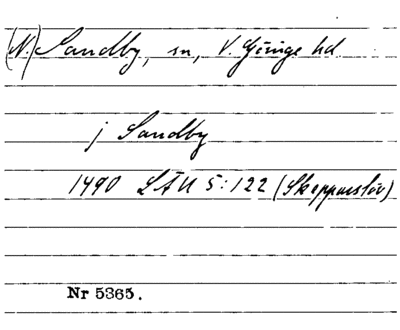 (N.) Sandby, sn, V. Göinge hd
j Sandby
1490 LÄU 5:122 (Skepparslöv)
Nr 5365.